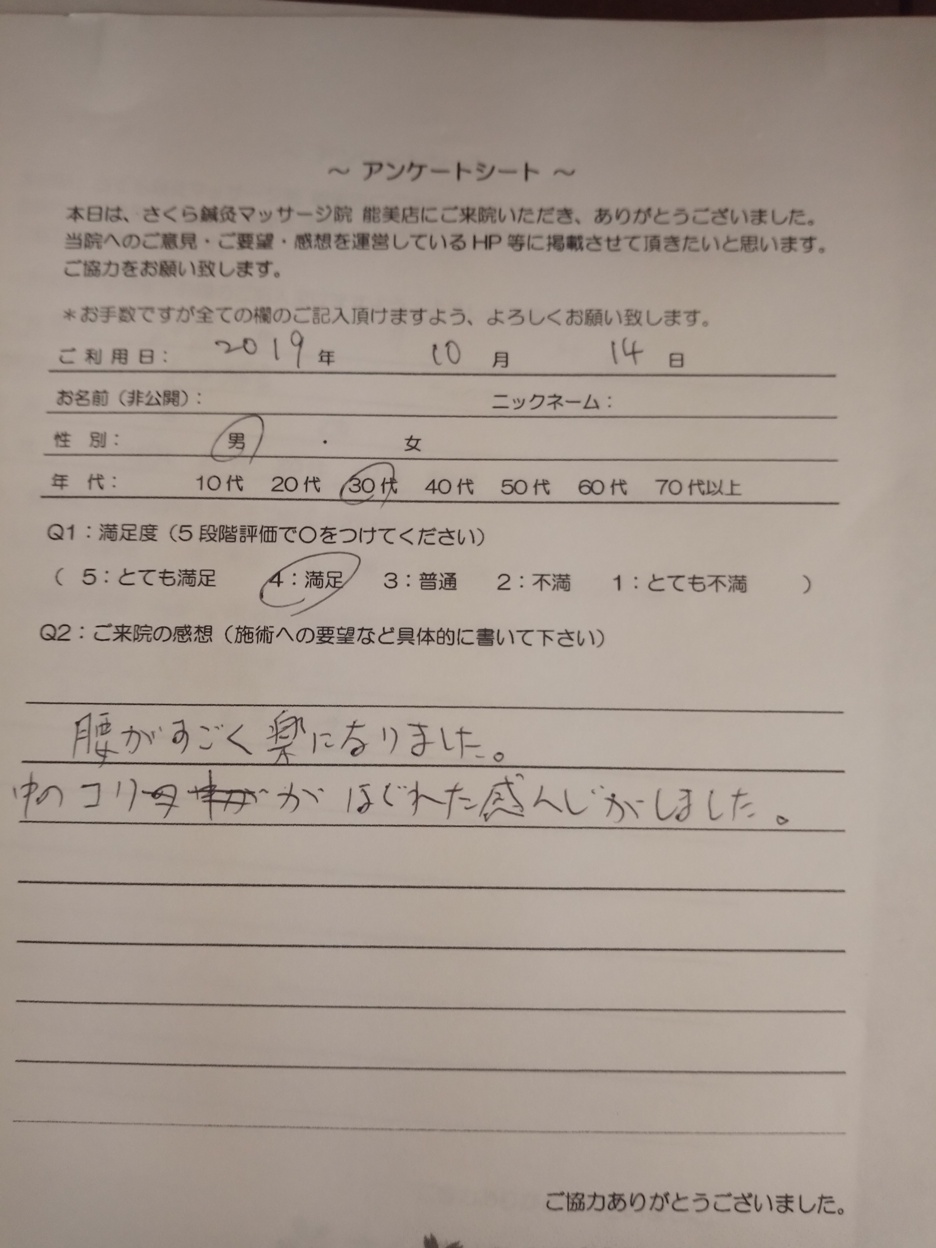 ～ アンケートシート ～
本日は、さくら鍼灸マッサージ院 能美店にご来院いただき、ありがとうございました。
当院へのご意見・ご要望・感想を運営しているHP等に掲載させて頂きたいと思います。
ご協力をお願い致します。
＊お手数ですが全ての欄のご記入頂けますよう、よろしくお願い致します。
ご利用日： 2019 年 10 月 14 日
お名前（非公開）： ニックネーム：
性 別： 男 ・ 女
年 代： 10代 20代 30代 40代 50代 60代 70代以上
Q1：満足度（5段階評価で〇をつけてください）
（ 5：とても満足 4：満足 3：普通 2：不満 1：とても不満 ）
Q2：ご来院の感想（施術への要望など具体的に書いて下さい）
腰がすごく楽になりました。
中のコリがほぐれた感んじがしました。
ご協力ありがとうございました。